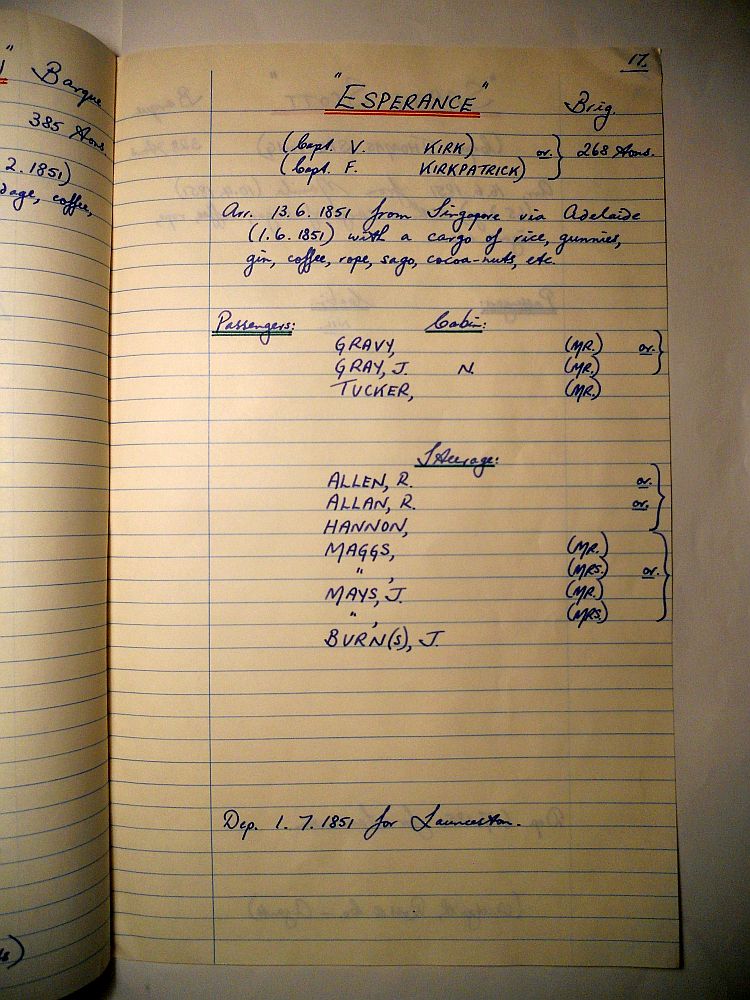 " Barque
385 Tons.
2.1851)
dage, coffee,
17.
"ESPERANCE" Brig.
(Capt. V. KIRK) or. } 268 Tons.
(Capt. F. KIRKPATRICK)
Arr. 13.6.1851 from Singapore via Adelaide
(1.6.1851) with a cargo of rice, gunnies,
gin, coffee, rope, sago, cocoa-nuts, etc.
Passengers: Cabin:
GRAVY, (MR.) or. }
GRAY, J. N. (MR.)
TUCKER, (MR.)
Steerage:
ALLEN, R. or. }
ALLAN, R. or.
HANNON,
MAGGS, (MR.)
" , (MRS.) or. }
MAYS, J. (MR.)
" , (MRS.)
BURN(S), J.
Dep. 1.7.1851 for Launceston.